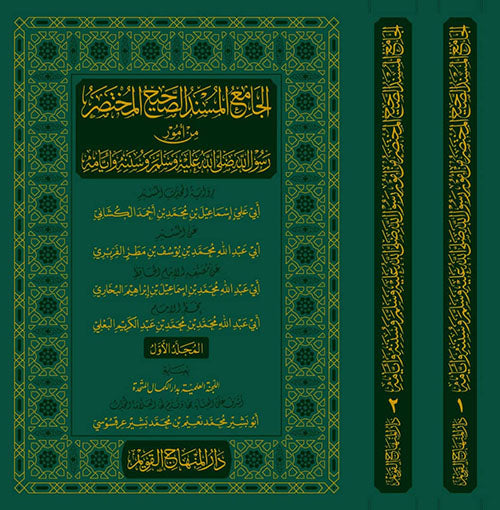 الجامع المسند الصحيح المختصر
من أمور
رسول الله صلى الله عليه وسلم وسننه وأيامه
رواية
أبي علي إسماعيل بن محمد بن أحمد الكشاني
عن
أبي عبد الله محمد بن يوسف بن مطر الفربري
عن تصنيف الإمام الحافظ
أبي عبد الله محمد بن إسماعيل بن إبراهيم البخاري
بخط الإمام
أبي عبد الله محمد بن محمد بن عبد الكريم البعلي
المجلد الأول
بعناية
اللجنة العلمية بدار الكمال المتحدة
أبو بشير محمد نعيم بن محمد بشير عرقسوسي
دار المنهاج القويم
الجامع المسند الصحيح المختصر من أمور رسول الله صلى الله عليه وسلم وسننه وأيامه
١
دار المنهاج القويم
الجامع المسند الصحيح المختصر من أمور رسول الله صلى الله عليه وسلم وسننه وأيامه
٢
دار المنهاج القويم